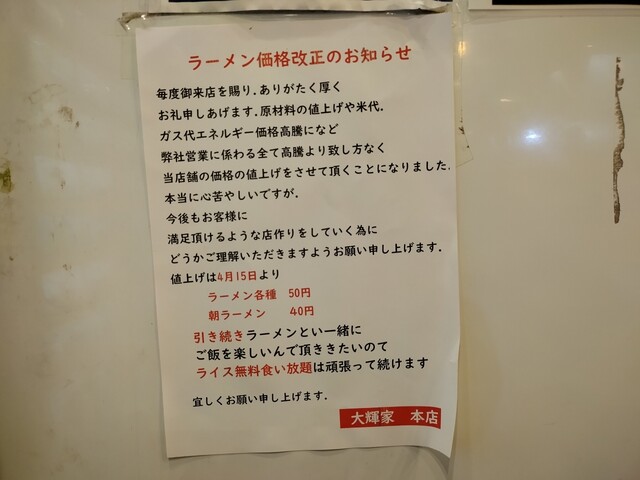 ラーメン価格改正のお知らせ
毎度御来店を賜り.ありがたく厚く
お礼申しあげます.原材料の値上げや米代.
ガス代エネルギー価格高騰になど
弊社営業に係わる全て高騰より致し方なく
当店舗の価格の値上げをさせて頂くことになりました.
本当に心苦やしいですが.
今後もお客様に
満足頂けるような店作りをしていく為に
どうかご理解いただきますようお願い申し上げます.
値上げは4月15日より
ラーメン各種 50円
朝ラーメン 40円
引き続きラーメンとい一緒に
ご飯を楽しいんで頂ききたいのて
ライス無料食い放題は頑張って続けます
宜しくお願い申し上げます.
大輝家 本店